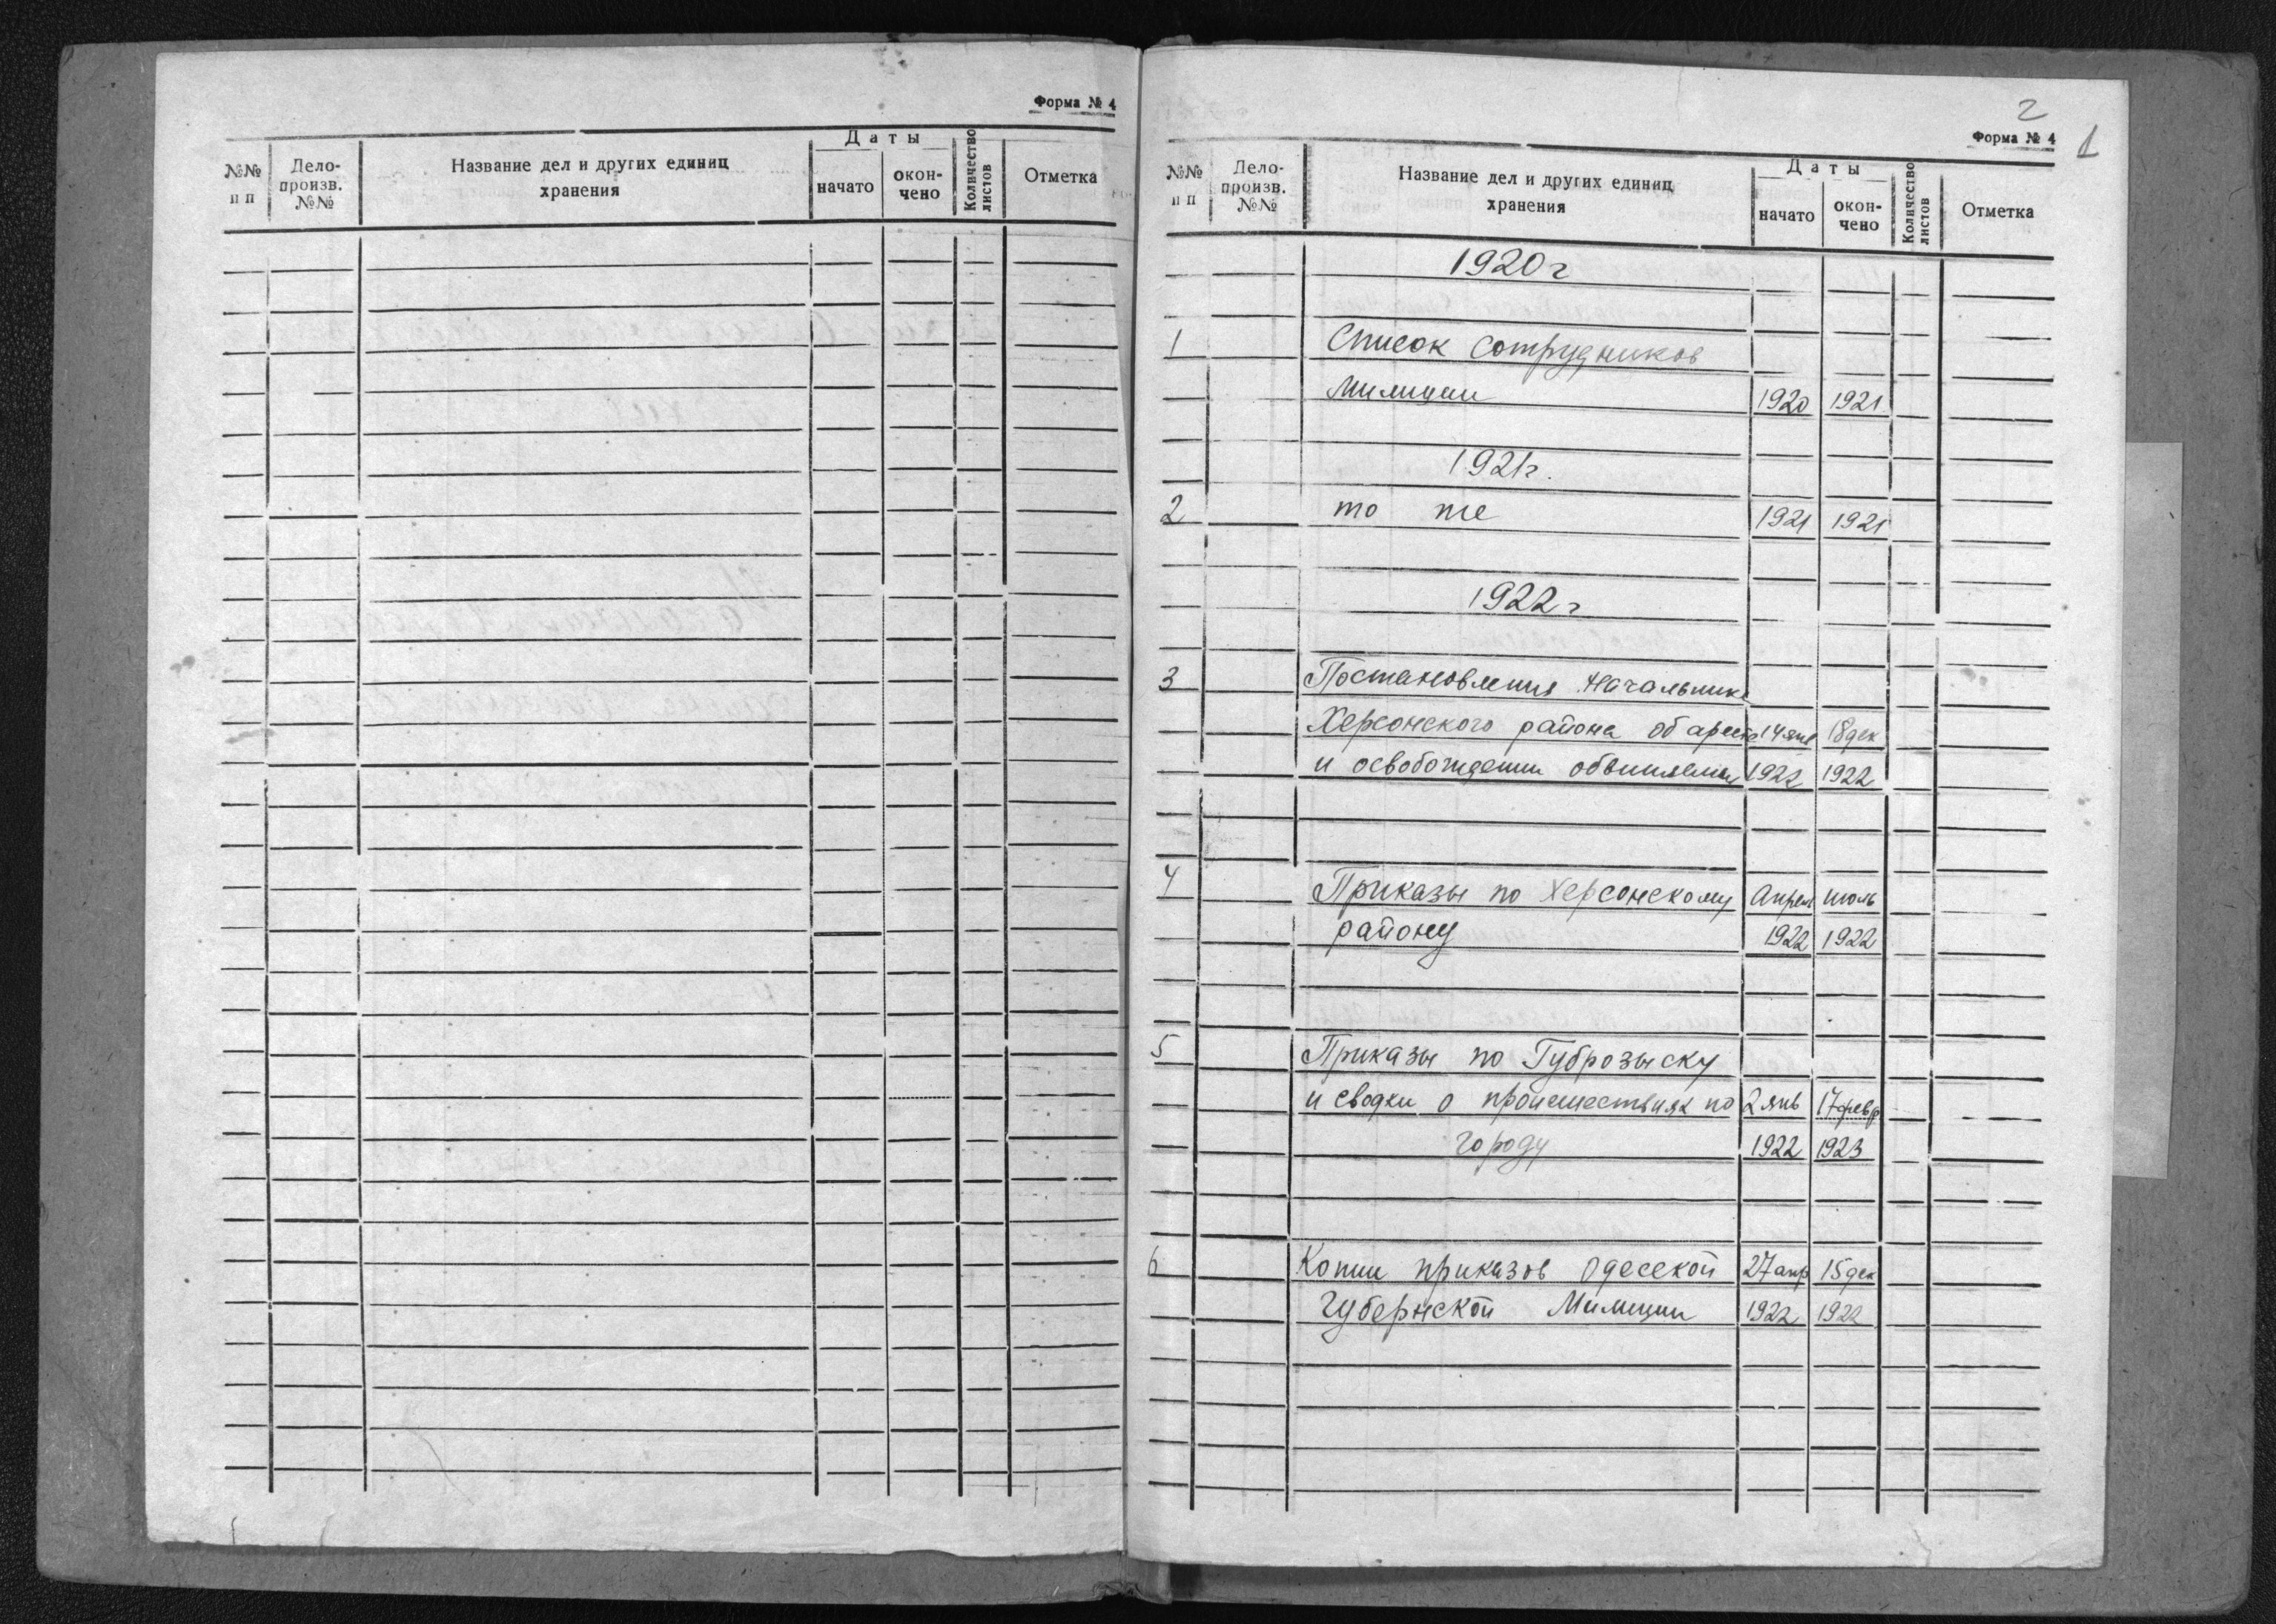 Форма № 4
№№ п п
Дело-произв. №№
Название дел и других единиц хранения
Даты
начато
окон-чено
Количество листов
Отметка
2
Форма № 4
1
№№ п п
Дело-произв. №№
Название дел и других единиц хранения
Даты
начато
окон-чено
Количество листов
Отметка
1920 г
1 Список сотрудников
Милиции 1920 1921
1921 г.
2 то же 1921 1921
1922 г
3 Постановления Начальника
Херсонского района об аресте 14 янв 18 дек
и освобождении обвиняемых 1922 1922
4 Приказы по Херсонскому Апрель июль
району 1922 1922
5 Приказы по Губрозыску
и сводки о происшествиях по 2 янв 17 февр
городу 1922 1923
6 Копии приказов Одесской 27 апр 15 дек
Губернской Милиции 1922 1922